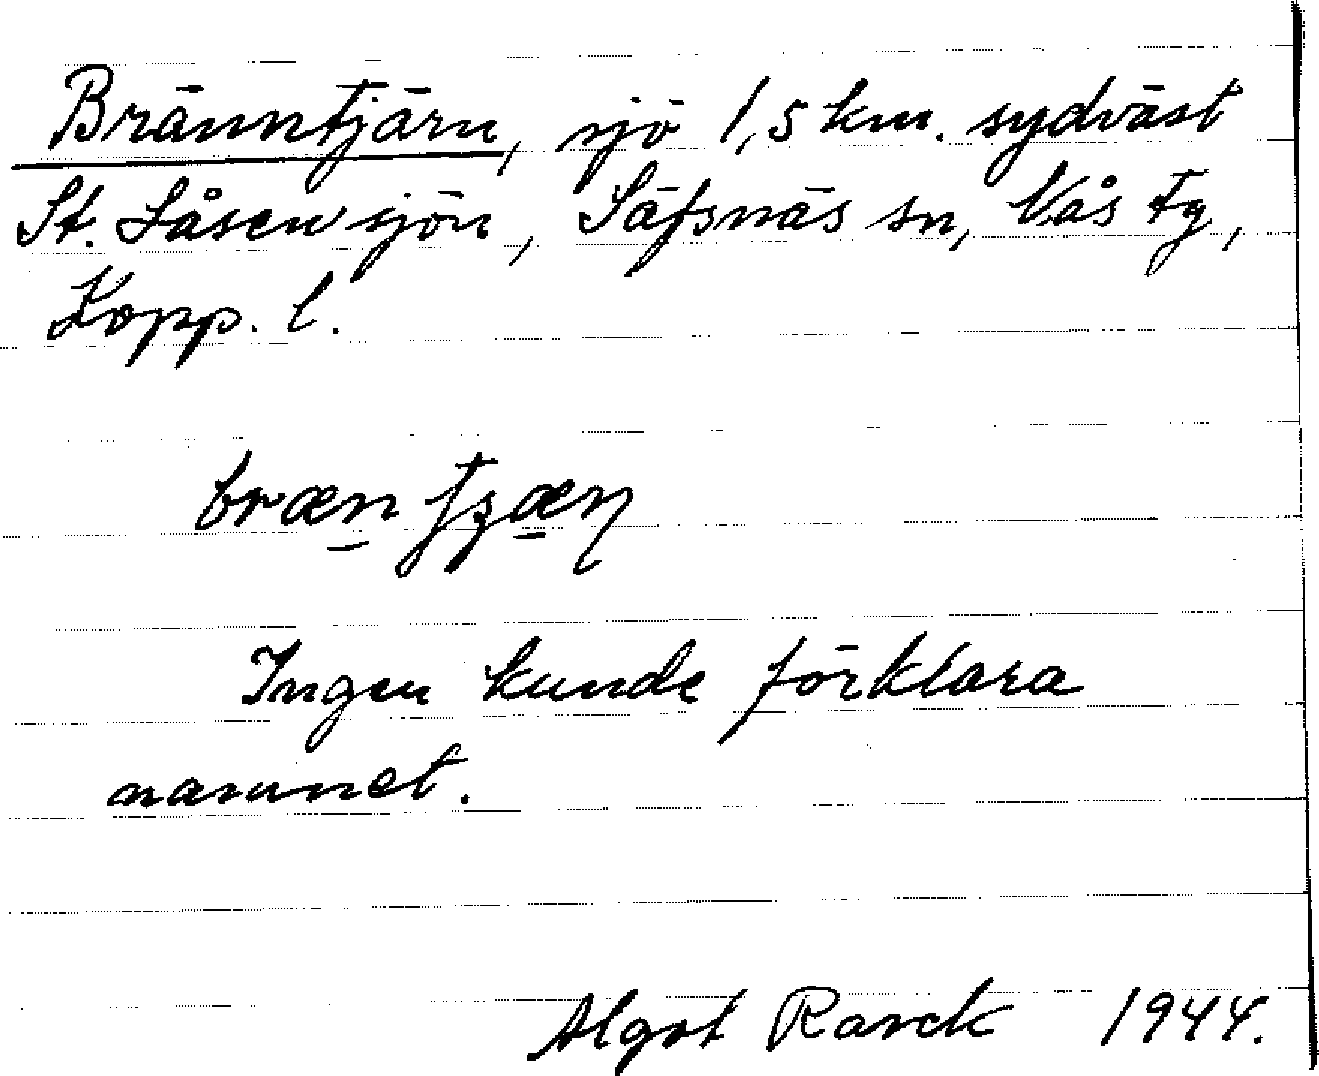 Bränntjärn, sjö 1,5 km. sydväst
St. Låsen sjön, Säfsnäs sn, Nås tg,
Kopp. l.
bræn
Ingen kunde förklara
namnet.
Algot Rarck 1944.